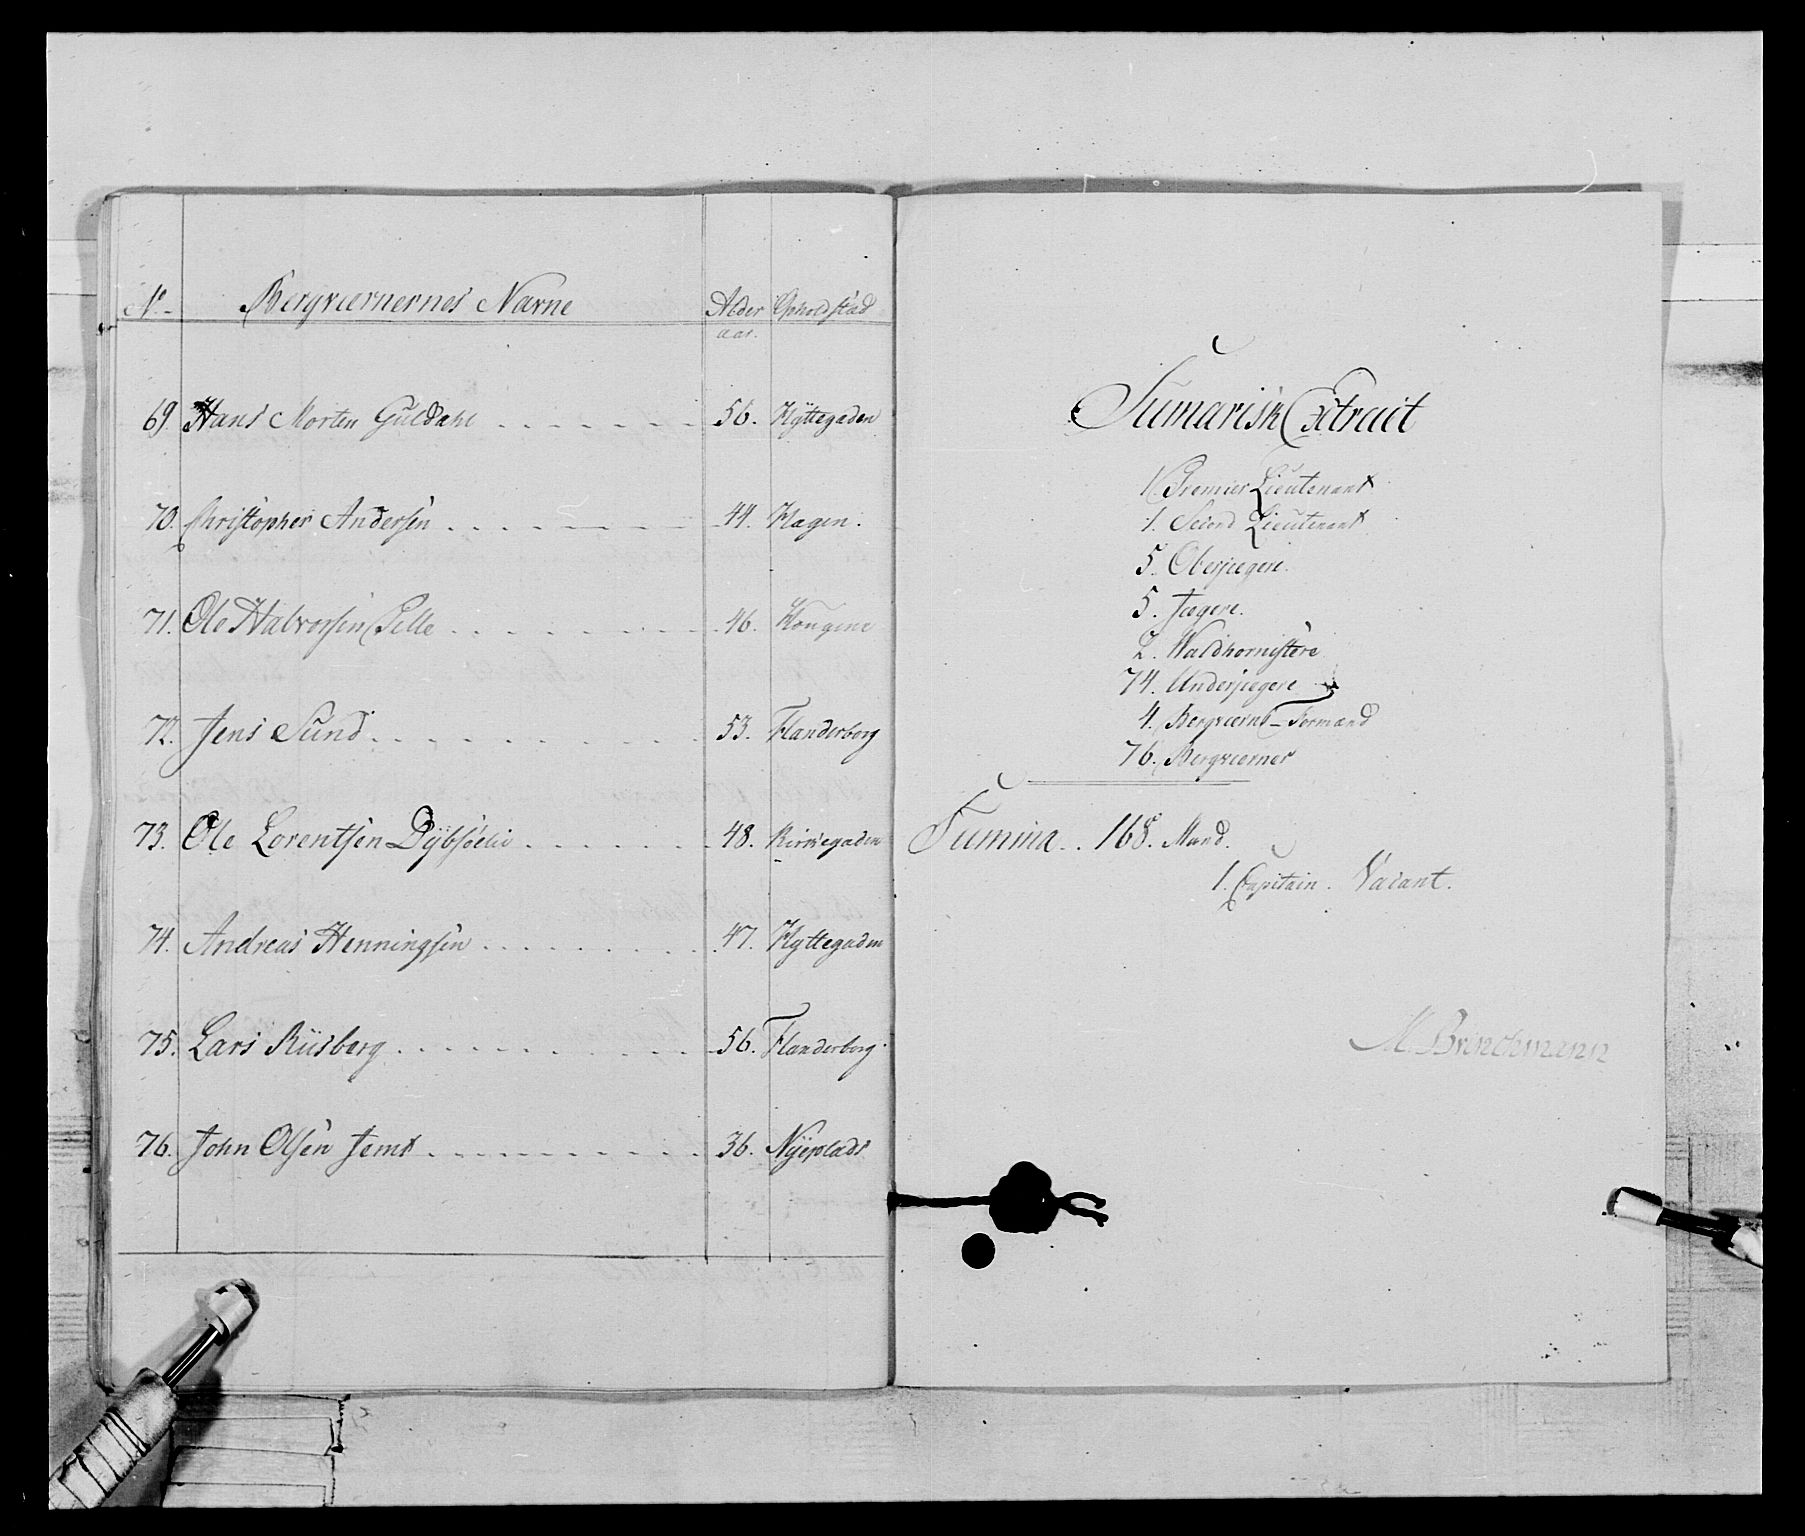 No. Bergværnernes Navne Alder Opholdstæd
aar.
69. Hans Morten Guldahl 56. Hyttegaden
70. Christopher Andersen 44. Hagen.
71. Ole Halvorsen Pille 46. Hougene
72. Jens Sund 53. Flanderborg
73. Ole Lorentsen Dybsöelie 48. Kirkegaden
74. Andreas Henningsen 47. Hyttegaden
75. Lars Riisberg 56. Flanderborg.
76. John Olsen Jemt 36. Nyeplads
Sumarisk Extract
1. Premier Lieutenant
1. Second Lieutenant
5. Oberjægere.
5. Jægere.
2. Waldhornistere
74. Underjægere
4. Bergværns-Formænd
76. Bergværner
Summa.. 168. Mand.
1. Capitain. Vacant.